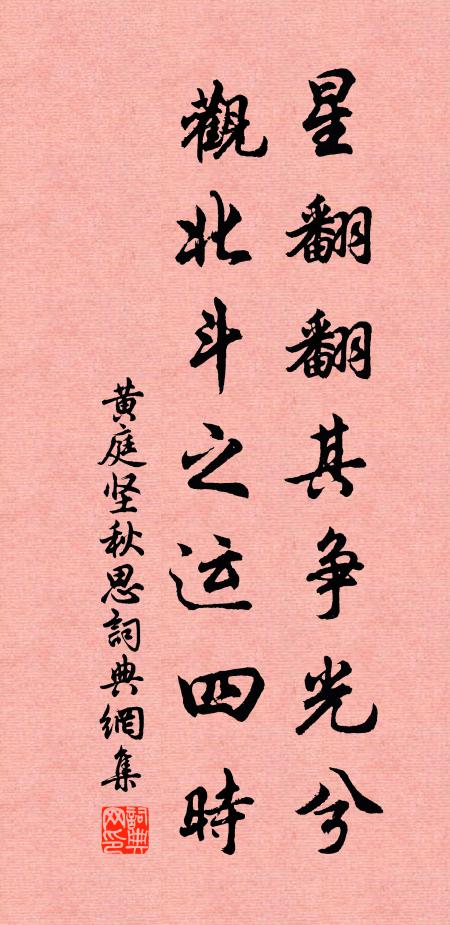 星翻翻其争光兮
觀北斗之运四時
黄庭坚秋思詞典網集
詞典网印